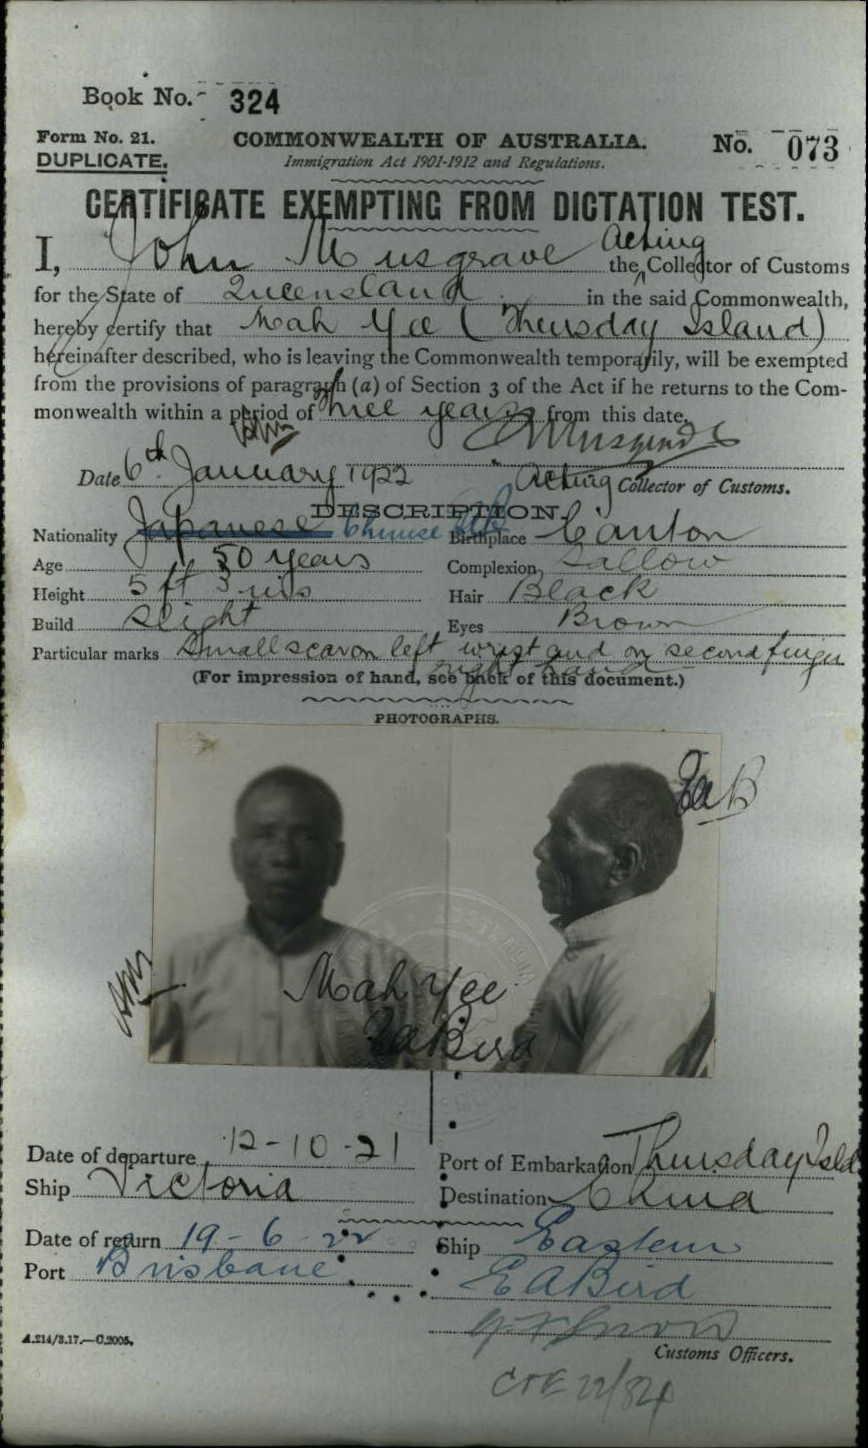 Book No. 324
Form No. 21. COMMONWEALTH OF AUSTRALIA. No. 073
DUPLICATE. Immigration Act 1901-1912 and Regulations.
CERTIFICATE EXEMPTING FROM DICTATION TEST.
I, John Musgrave Acting the Collector of Customs
for the State of Queensland in the said Commonwealth,
hereby certify that Mah Yee (Thursday Island)
hereinafter described, who is leaving the Commonwealth temporarily, will be exempted
from the provisions of paragraph (a) of Section 3 of the Act if he returns to the Com-
monwealth within a period of three years from this date.
Date 6th January 1922 Acting Collector of Customs.
DESCRIPTION.
Nationality Japanese Chinese Birthplace Canton
Age 50 years Complexion Sallow
Height 5 ft 3 ins Hair Black
Build Slight Eyes Brown
Particular marks Small scar on left wrist and on second finger
right hand
(For impression of hand, see back of this document.)
PHOTOGRAPHS.
EaB
Mah Yee
EaBird
Date of departure 12-10-21 Port of Embarkation Thursday Isld
Ship Victoria Destination China
Date of return 19-6-22 Ship Eastern
Port Brisbane EABird
Customs Officers.
A.214/3.17.—C.2005.
CTE 22/84